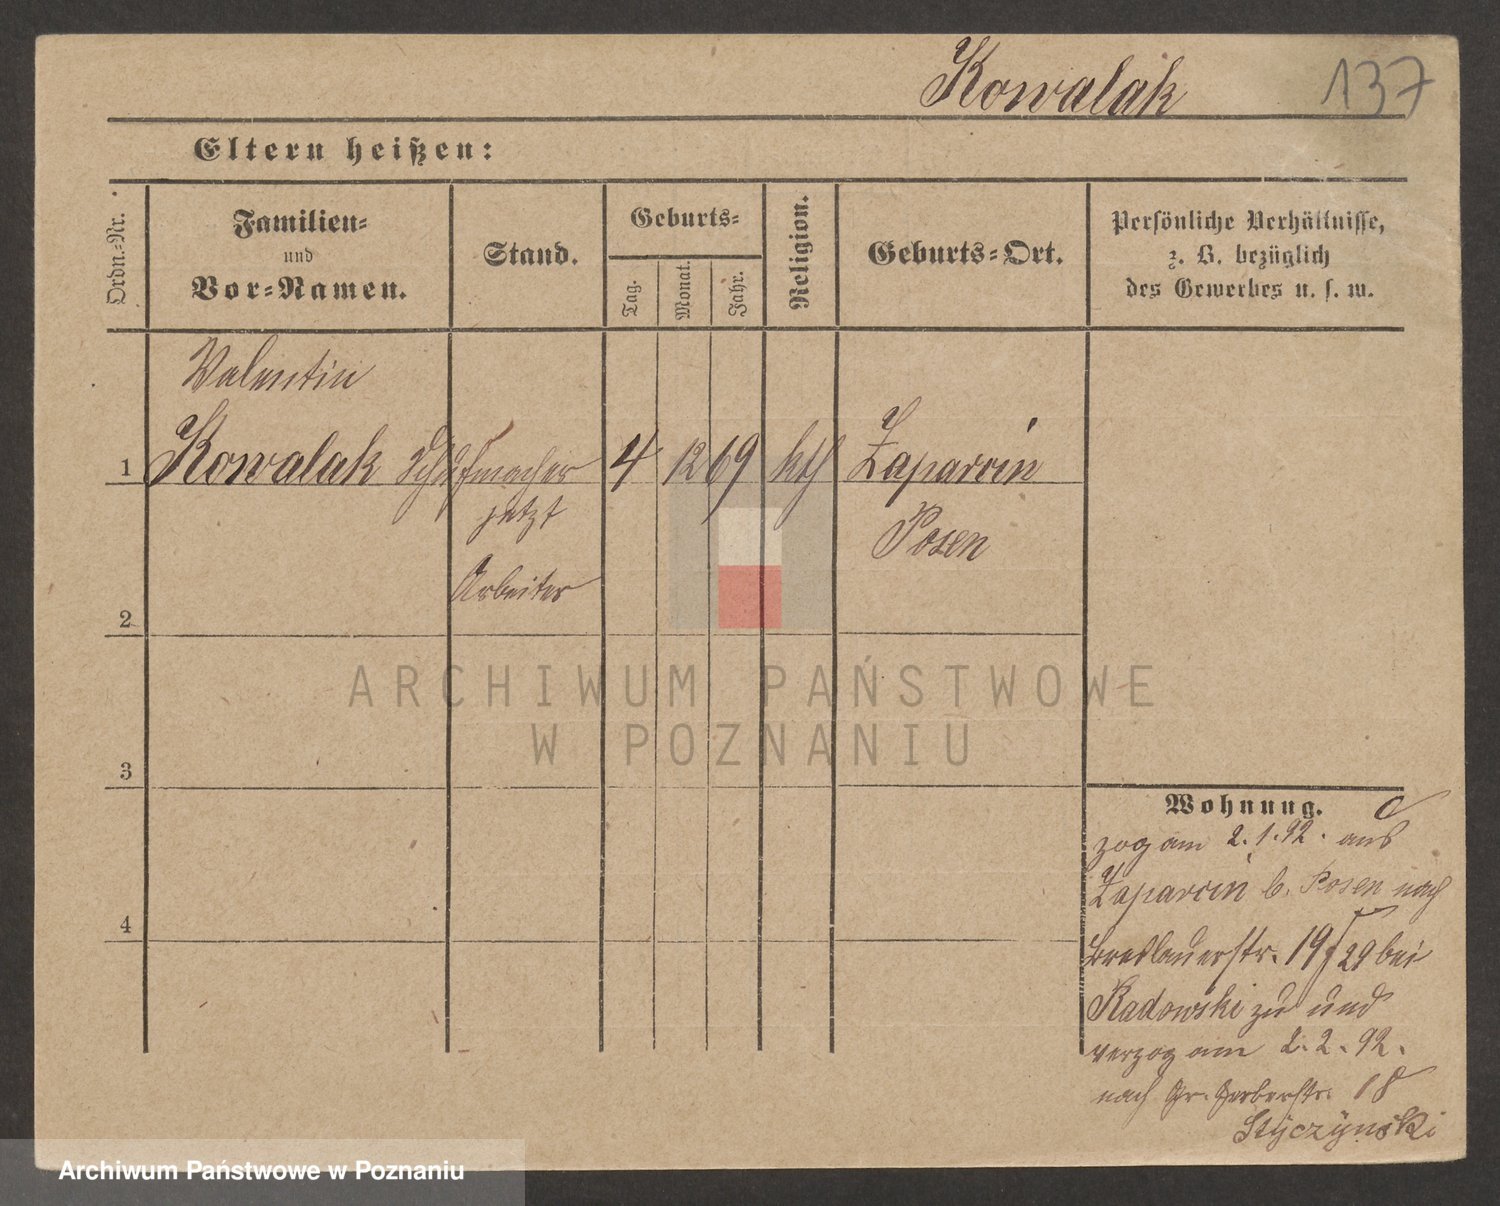 Kowalak 137
Eltern heißen:
Ordn.-Nr.
Familien-
und
Vor-Namen.
Stand.
Geburts-
Tag.
Monat.
Jahr.
Religion.
Geburts-Ort.
Persönliche Verhältnisse,
z. B. bezüglich
des Gewerbes u. s. w.
Valentin
1 Kowalak Schuhmacher 4 12 69 kth Zaparcin
jetzt
Posen
Arbeiter
2
3
4
Wohnung.
zog am 2.1.92. aus
Zaparcin b. Posen nach
Breslauerstr. 19 I 29 bei
Radowski zu und
verzog am 2.2.92.
nach Gr. Gerberstr. 18
Styczynski
ARCHIWUM PAŃSTWOWE
W POZNANIU
Archiwum Państwowe w Poznaniu